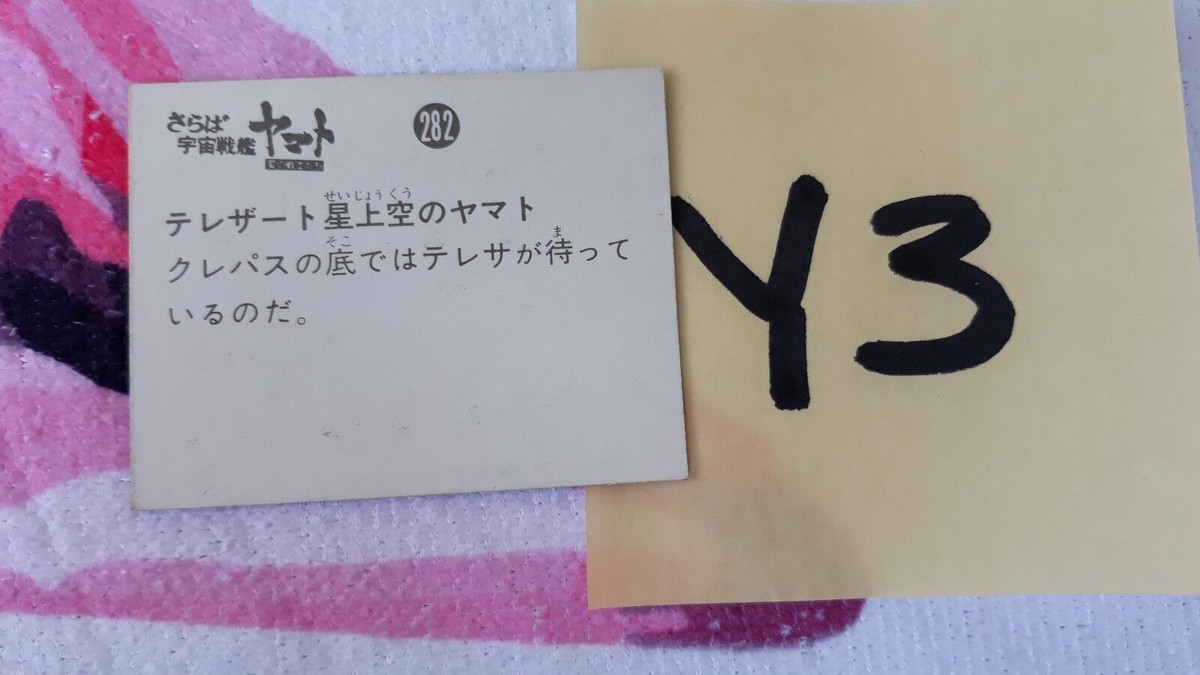 さらば
宇宙戦艦 ヤマト
282
テレザート星上空のヤマト
せいじょうくう
クレパスの底ではテレサが待って
そこ
ま
いるのだ。
Y3